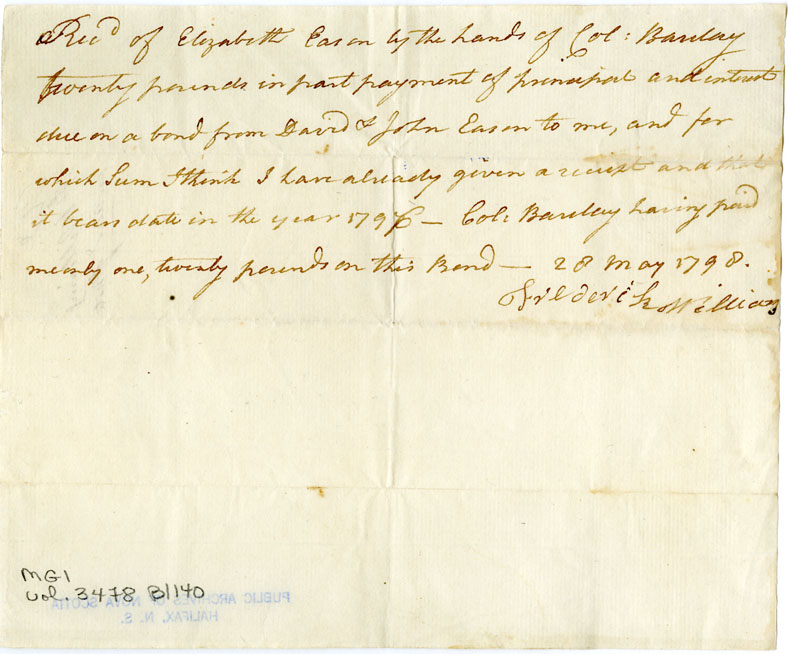 Rec.d of Elizabeth Eason by the hands of Col: Barclay
twenty pounds in part payment of principal and interest
due on a bond from David & John Eason to me, and for
which Sum I think I have already given a receipt and that
it bears date in the year 1796 — Col: Barclay having paid
me only one, twenty pounds on this Bond — 28 May 1798.
Frederick Williams
MG1
vol. 3478 B/140
PUBLIC ARCHIVES OF NOVA SCOTIA
HALIFAX, N. S.